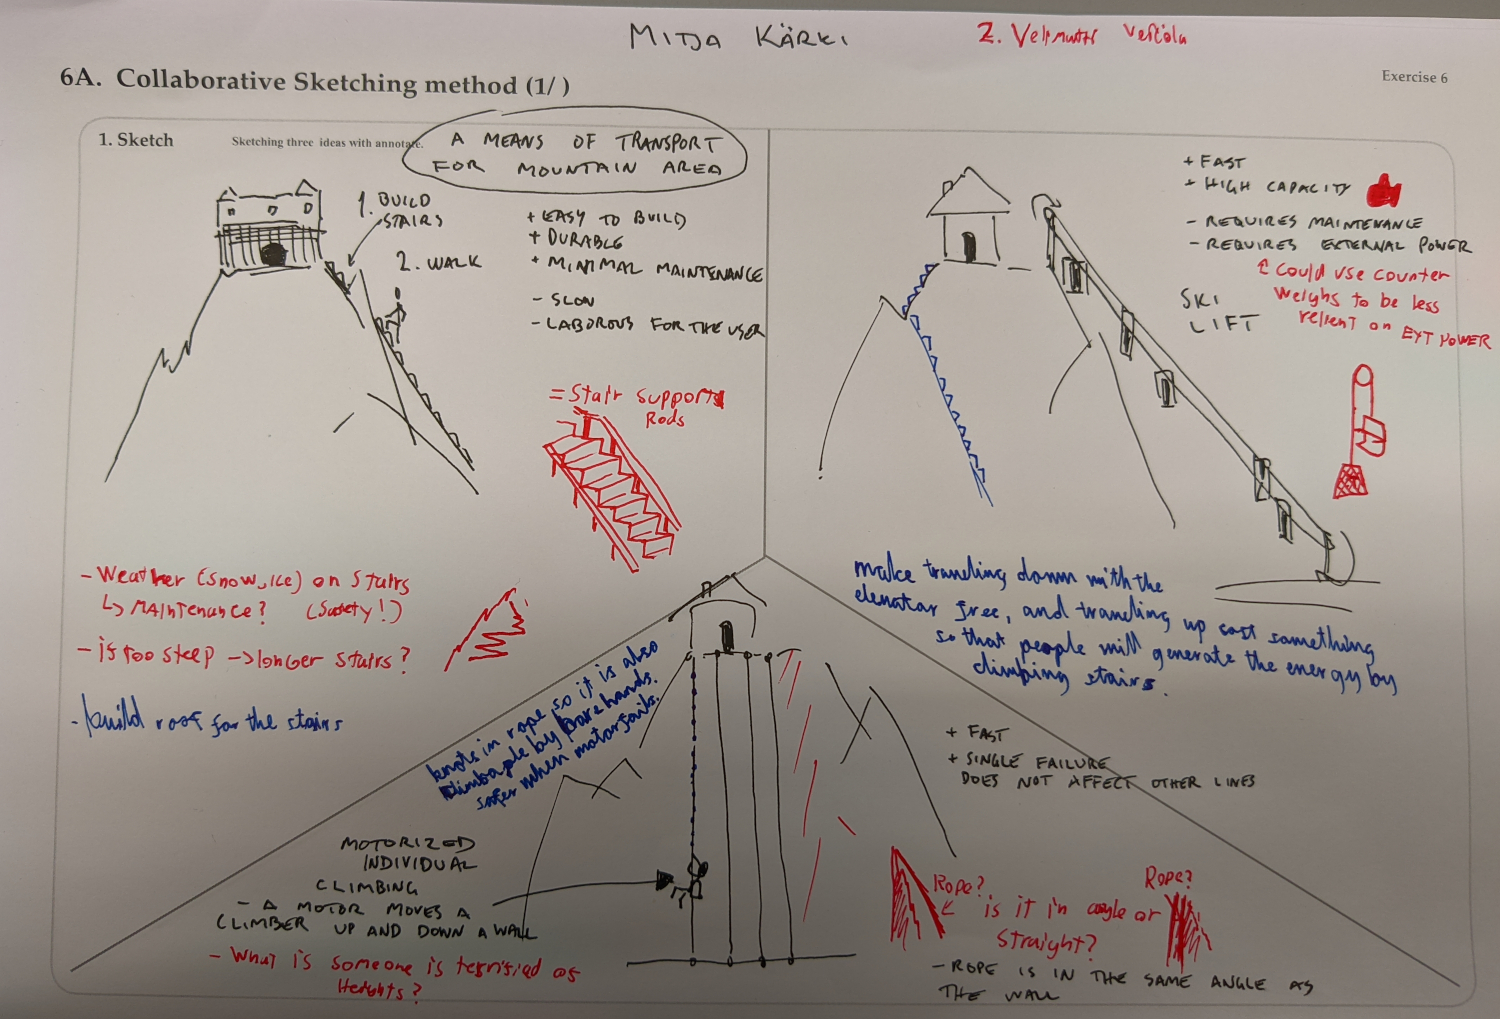 MITJA KÄRKI
2. Velimatti
6A. Collaborative Sketching method (1/ )
Exercise 6
1. Sketch
Sketching three ideas with annotate.
A MEANS OF TRANSPORT
FOR MOUNTAIN AREA
1. BUILD
STAIRS
2. WALK
+ EASY TO BUILD
+ DURABLE
+ MINIMAL MAINTENANCE
- SLOW
- LABOROUS FOR THE USER
= Stair supports
Rods
- Weather (snow, ice) on stairs
↳ MAIntenance? (Safety!)
- is too steep -> longer stairs?
- build roof for the stairs
+ FAST
+ HIGH CAPACITY
- REQUIRES MAINTENANCE
- REQUIRES EXTERNAL POWER
↑ Could use counter
weighs to be less
relient on EXT POWER
SKI
LIFT
make traveling down with the
elevator free, and traveling up cost something
so that people will generate the energy by
climbing stairs.
knots in rope, so it is also
climbable by bare hands.
safer when motor fails.
MOTORIZED
INDIVIDUAL
CLIMBING
- A MOTOR MOVES A
CLIMBER UP AND DOWN A WALL
- What is someone is terrified of
Heights?
+ FAST
+ SINGLE FAILURE
DOES NOT AFFECT OTHER LINES
Rope?
Rope?
is it in angle or
straight?
- ROPE IS IN THE SAME ANGLE AS
THE WALL